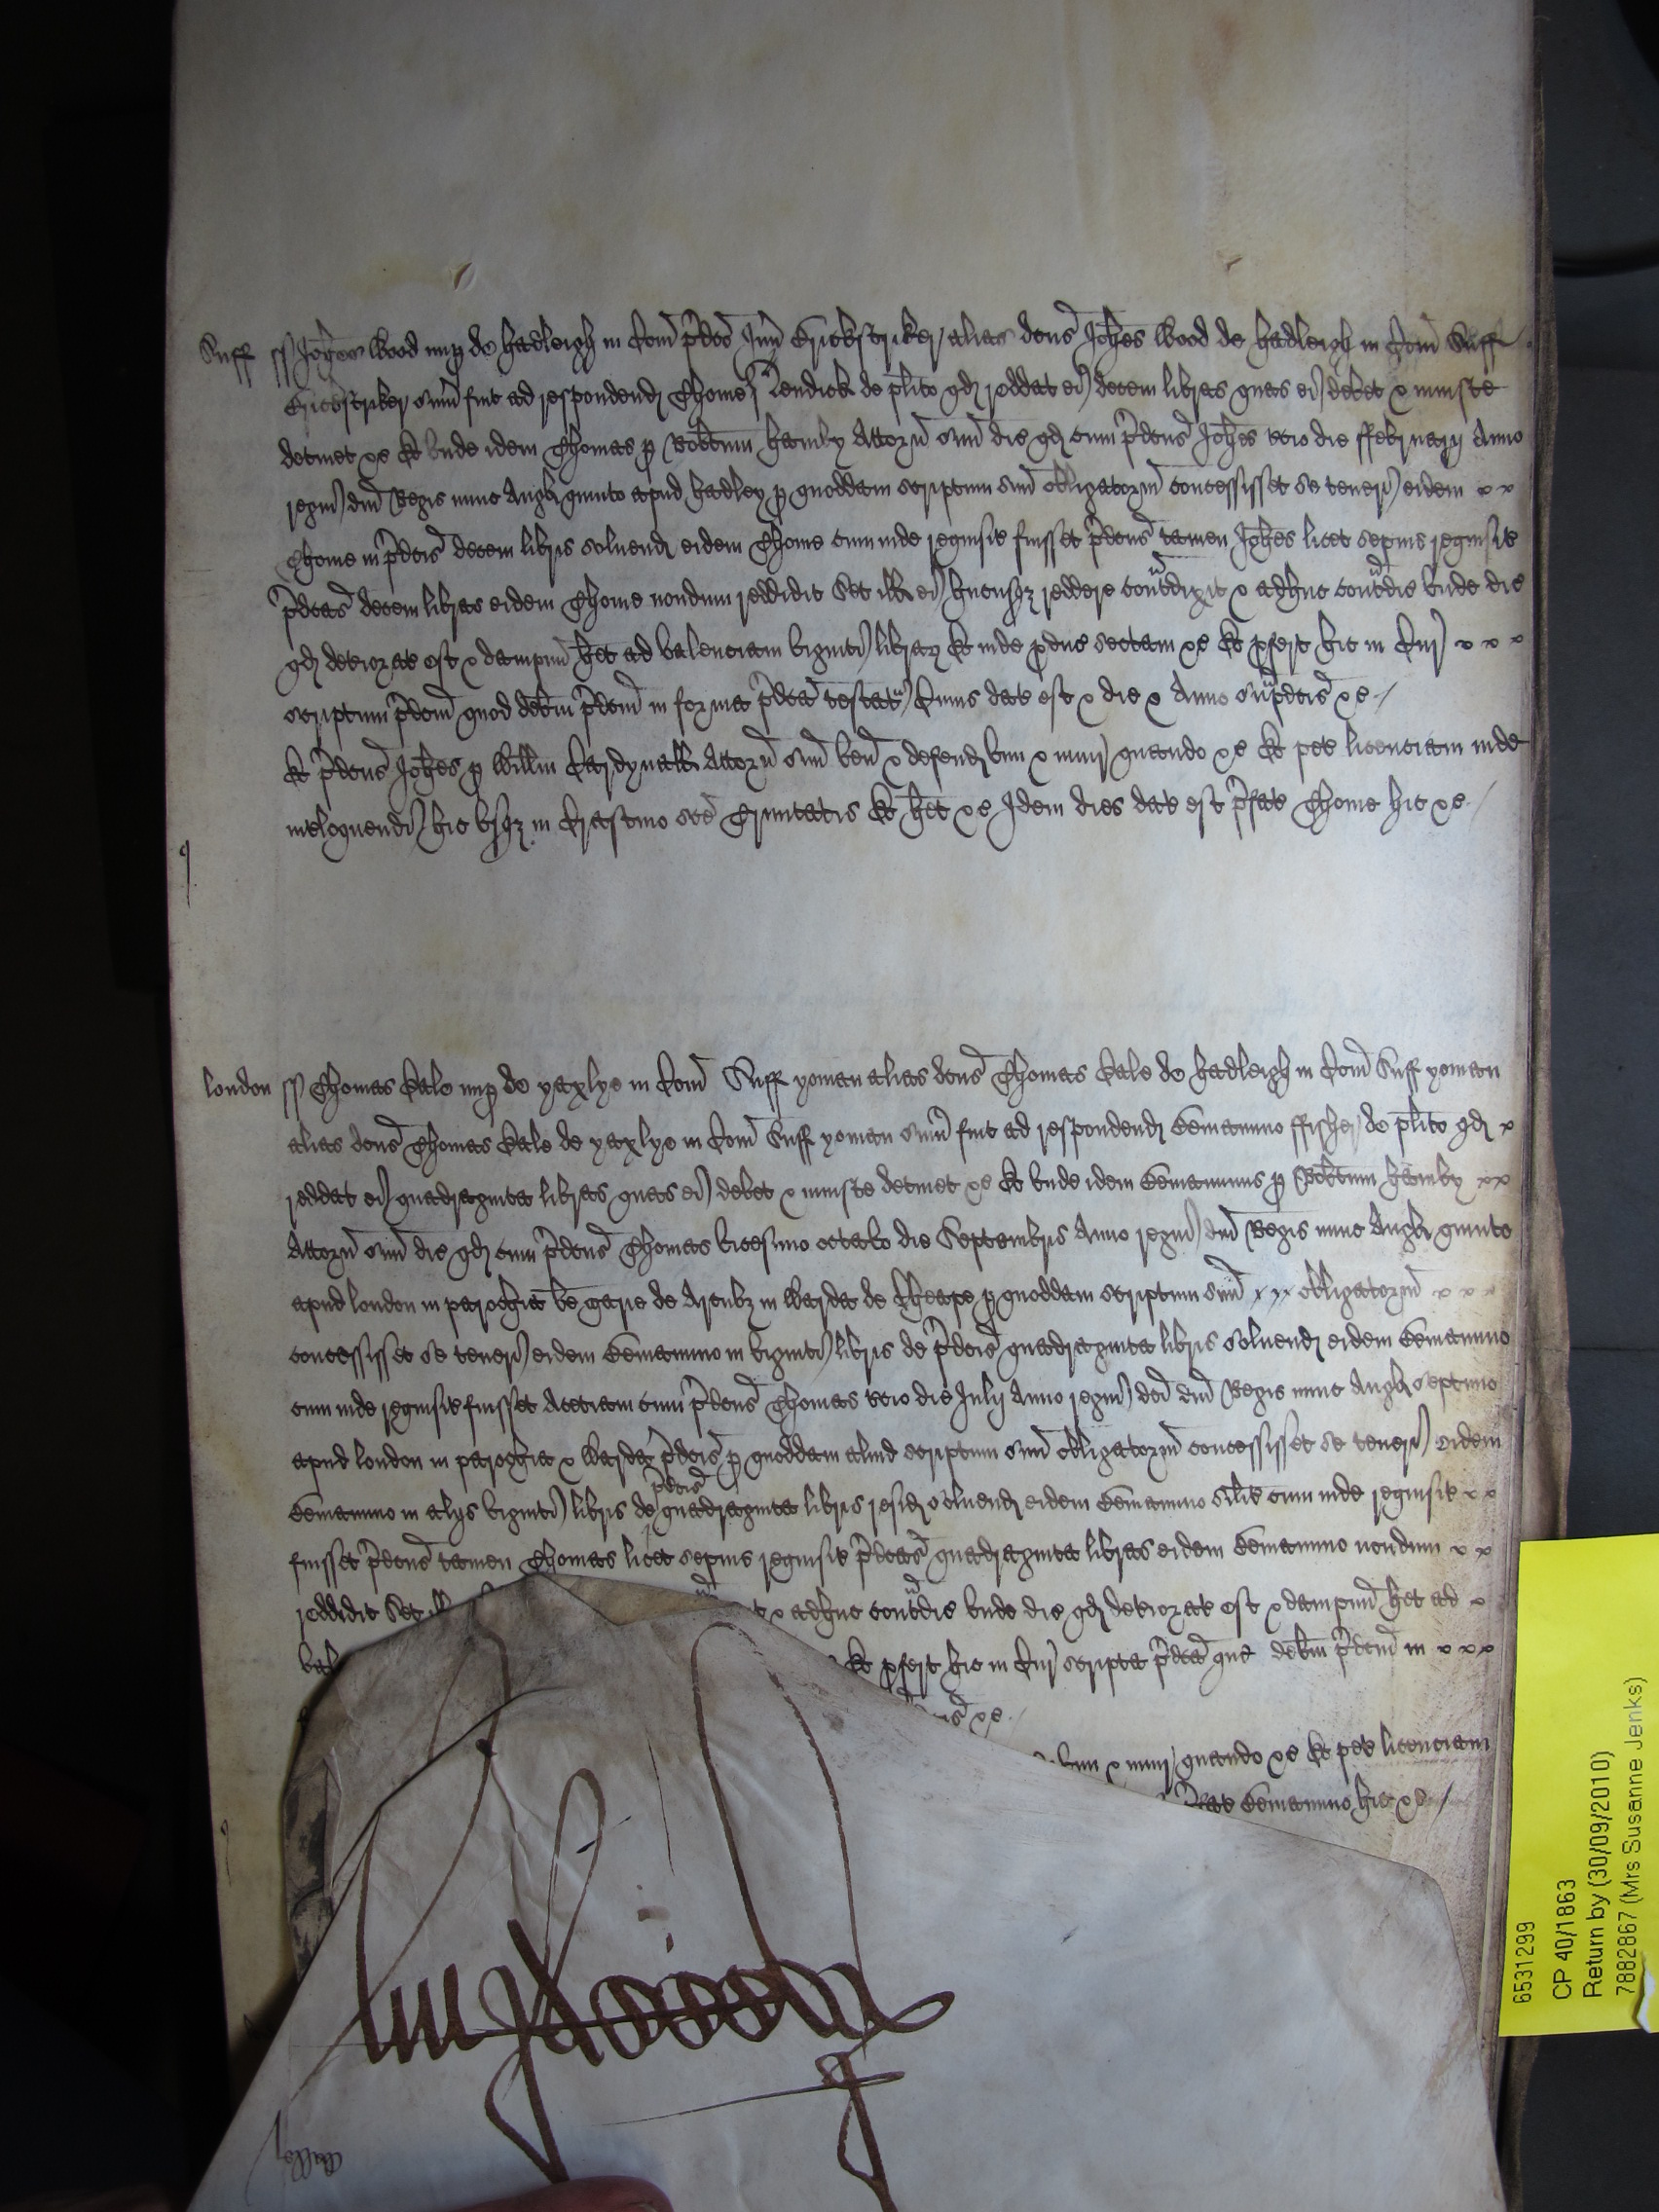 Suff ss Joh̄es Wood nup̱ de hadleigh in Com̄ p̄dc̄o Inn̄ Brickstriker alias dc̄us Joh̄es Wood de hadleigh in Com̄ Suff
Brickstriker sum̄ fuit ad respondend Thome Kendick de pl̄ito qd reddat ei decem libras quas ei debet & iniuste
detinet &c Et unde idem Thomas p̱ Rob̄tum hamby Attorn̄ suū dic qd cum p̄dc̄us Joh̄es t̄cio die ffebruarij Anno
regn̄ dn̄i Regis nunc Angl quinto apud hadley p̱ quoddam scriptum suū obligatoriū concessisset se teneri eidem
Thome in p̄dc̄is decem libris solvend eidem Thome cum inde requisit fuisset p̄dc̄us tamen Joh̄es licet sepius requisit
p̄dc̄as decem libras eidem Thome nondum reddidit Set ill ei hucusqȝ reddere cont̄dixit & adhuc cont̄dic unde dic
qd deteriorat est & dampnū h̄et ad valenciam viginti libraꝝ Et inde p̱duc sectam &c Et p̱fert hic in Cur̄
scriptum p̄dc̄m quod deb̄m p̄dc̄m in forma p̄dc̄a testat̄ Cuius dat est & die & Anno sup̄dc̄is &c
Et p̄dc̄us Joh̄es p̱ Will̄m Cardynall Attorn̄ suū ven̄ & defend vim & iniur̄ quando &c Et pet licenciam inde
inteloquendi hic usqȝ in Crastino sc̄e Trinitatis Et h̄et &c Idem dies dat est p̄fat Thome hic &c
london ss Thomas Cale nup̱ de yaxlye in Com̄ Suff yoman alias dc̄us Thomas Cale de hadleigh in Com̄ Suff yoman
alias dc̄us Thomas Cale de yaxlye in Com̄ Suff yoman sum̄ fuit ad respondend Beniamino ffisher de pl̄ito qd
reddat ei quadraginta libras quas ei debet & iniuste detinet &c Et unde idem Beniaminus p̱ Rob̄tum hamby
Attorn̄ suū dic qd cum p̄dc̄us Thomas vicesimo octavo die Septembris Anno regn̄ dn̄i Regis nunc Angl quinto
apud london in parochia be marie de Arcubȝ in Warda de Cheape p̱ quoddam scriptum suū obligatoriū
concessisset se teneri eidem Beniamino in viginti libris de p̄dc̄is quadraginta libris solvend eidem Beniamino
cum inde requisit fuisset Acetiam cum p̄dc̄us Thomas t̄cio die Julij Anno regn̄ dc̄i dn̄i Regis nunc Angl septimo
apud london in parochia & Warda p̄dc̄is p̱ quoddam aliud scriptum suū obligatoriū concessisset se teneri eidem
Beniamino in alijs viginti libris de p̄dc̄is quadraginta libris resid solvend eidem Beniamino sil̄it cum inde requisit
fuisset p̄dc̄us tamen Thomas licet sepius requisit p̄dc̄as quadraginta libras eidem Beniamino nondum
reddidit Set ill & adhuc cont̄dic unde dic qd deteriorat est & dampnū h̄et ad
val Et p̱fert hic in Cur̄ scripta p̄dc̄a que deb̄m p̄dc̄m in
&c
vim & iniur̄ quando &c Et pet licenciam
p̄fat Beniamino hic &c
6531299
CP 40/1863
Return by (30/09/2010)
7882867 (Mrs Susanne Jenks)